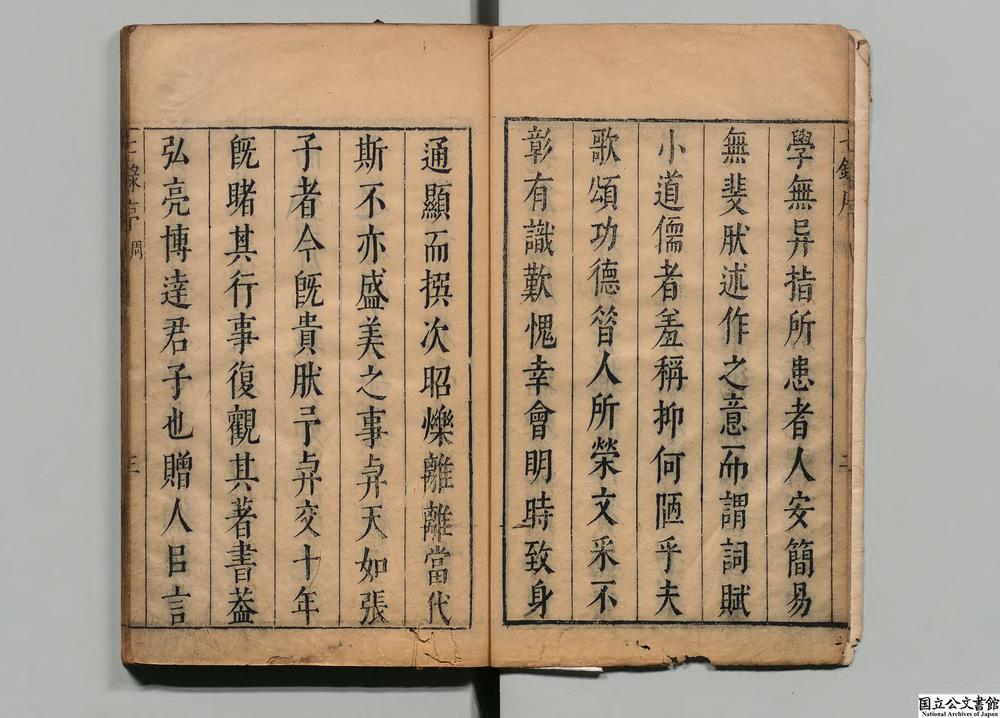 學無异指所患者人安簡易
無斐肰述作之意而謂詞賦
小道儒者羞稱抑何陋乎夫
歌頌功德晉人所榮文采不
彰有識歎愧幸會明時致身
通顯而撰次昭爍離離當代
斯不亦盛美之事弅天如張
子者今旣貴肰予弅交十年
旣睹其行事復觀其著書葢
弘亮博達君子也贈人㠯言
七錄序
二
七錄序
三
国立公文書館
National Archives of Japan